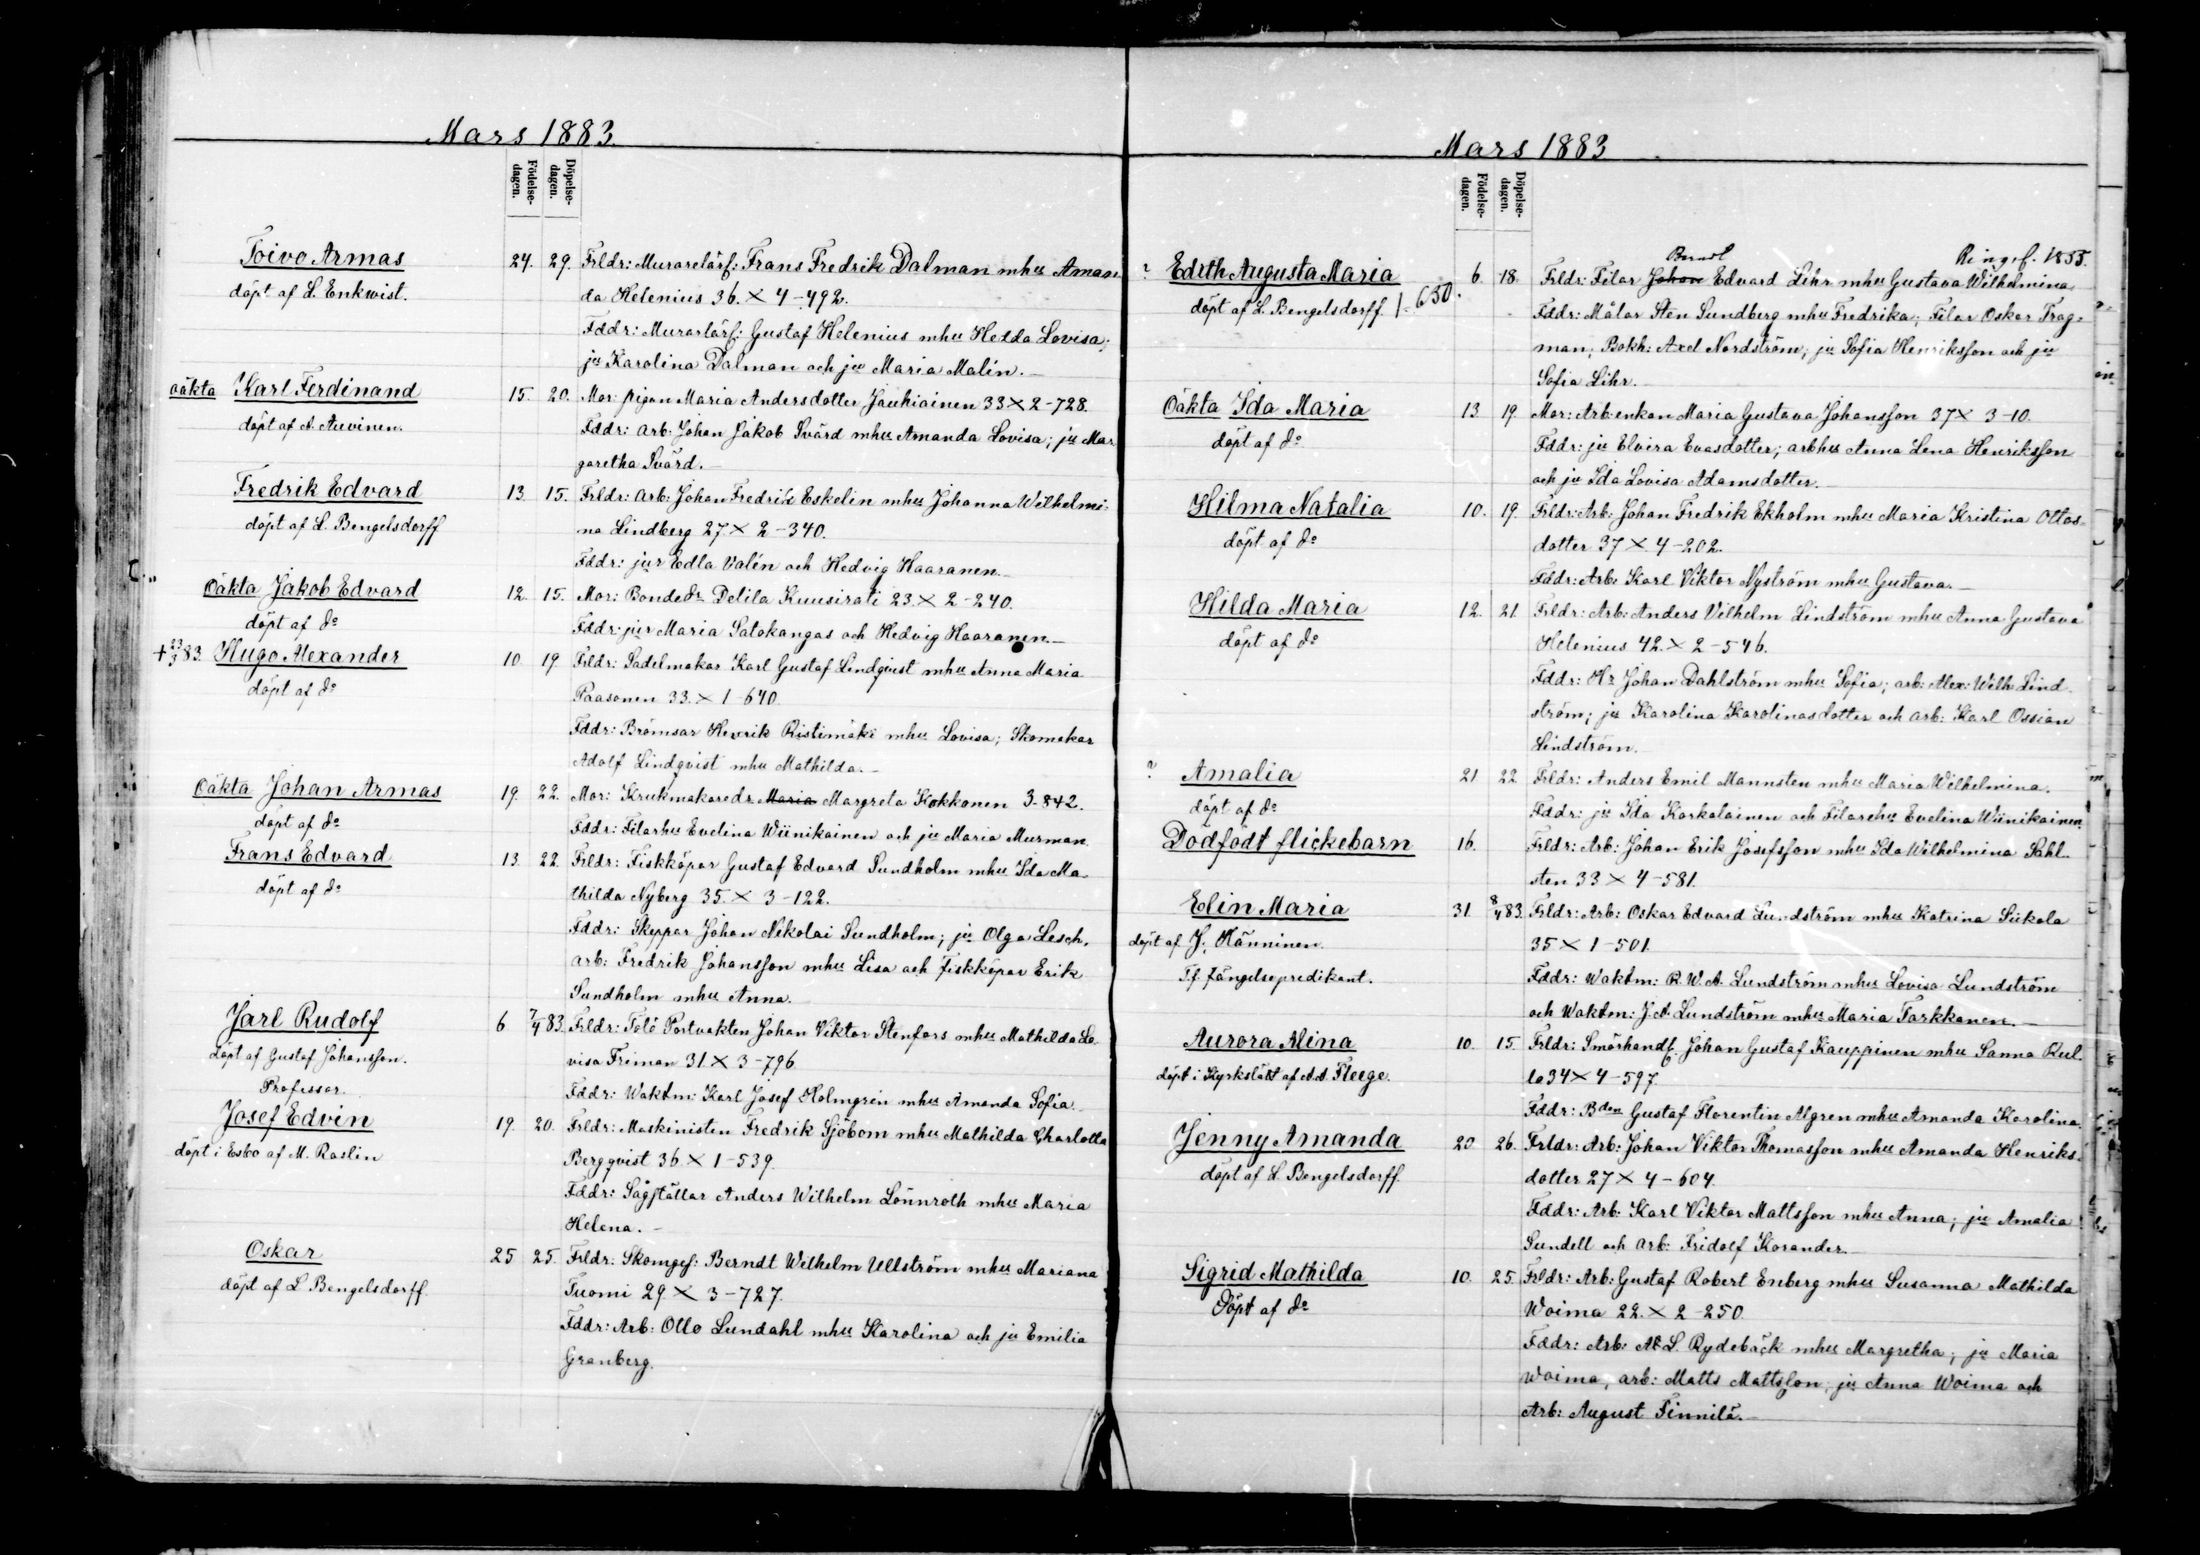 Mars 1883.
Födelse-
dagen.
Döpelse-
dagen.
Toivo Armas 24. 29. Frldr: Murarelärl: Frans Fredrik Dalman mhu Aman-
döpt af L. Enkwist. da Helenius 36. X 4-492.
Fddr: Murarlärl: Gustaf Helenius mhu Helda Lovisa;
ju Karolina Dalman och ju Maria Malin.
oäkta Karl Ferdinand 15. 20. Mor: pigan Maria Andersdotter Jauhiainen 33 X 2-728.
döpt af A. Auvinen. Fddr: arb: Johan Jakob Svärd mhu Amanda Lovisa; ju Mar
garetha Svärd.
Fredrik Edvard 13. 15. Frldr: arb: Johan Fredrik Eskelin mhu Johanna Wilhelmi-
döpt af L. Bengelsdorff na Lindberg 27. X 2-340.
Fddr: jur Edla Valén och Hedvig Haaranen.
Oäkta Jakob Edvard 12. 15. Mor: Bondedr Delila Kuusirati 23. X 2-240.
döpt af do Fddr: jur Maria Satokangas och Hedvig Haaranen.
+ 23/3 83. Hugo Alexander 10. 19. Frldr: Sadelmakar Karl Gustaf Lindqvist mhu Anna Maria
döpt af do Paasonen 33. X 1-640.
Fddr: Brömsar Henrik Ristimäki mhu Lovisa; Skomakar
Adolf Lindqvist mhu Mathilda.
Oäkta Johan Armas 19. 22. Mor: Krukmakaredr Maria Margreta Kokkonen 3-842.
döpt af do Fddr: Filarhu Evelina Wiinikainen och ju Maria Murman
Frans Edvard 13. 22. Frldr: Fiskköpar Gustaf Edvard Sundholm mhu Ida Ma-
döpt af do thilda Nyberg 35. X 3-122.
Fddr: Skeppar Johan Nikolai Sundholm; ju Olga Lesch,
arb: Fredrik Johansson mhu Lisa och Fiskköpar Erik
Sundholm mhu Anna.
Jarl Rudolf 6 7/4 83. Frldr: Tölö Portvakten Johan Viktor Stenfors mhu Mathilda Lo-
döpt af Gustaf Johansson. visa Friman 31. X 3-796
Professor. Fddr: Waktm: Karl Josef Holmgrén mhu Amanda Sofia.
Josef Edvin 19. 20. Frldr: Maskinisten Fredrik Sjöbom mhu Mathilda Charlotta
döpt i Esbo af M. Roslin Bergqvist 36. X 1-539.
Fddr: Sågställar Anders Wilhelm Lönnroth mhu Maria
Helena.
Oskar 25 25. Frldr: Skomges: Berndt Wilhelm Ullström mhu Mariana
döpt af L. Bengelsdorff. Tuomi 29 X 3-727.
Fddr: Arb: Otto Lundahl mhu Karolina och ju Emilia
Granberg.
Mars 1883
Födelse-
dagen.
Döpelse-
dagen.
Berndt
? Edith Augusta Maria 6 18. Frldr: Filar Johan Edvard Lihr mhu Gustava Wilhelmina
döpt af L. Bengelsdorff. 1-630. Fddr: Målar Sten Sundberg mhu Fredrika; Filar Oskar Frag-
man, Bokh: Axel Nordström; ju Sofia Henriksson och ju
Sofia Lihr.
Oäkta Ida Maria 13 19. Mor: Arb:enkan Maria Gustava Johansson 37 X 3-10.
döpt af do Fddr: ju Elvira Evasdotter; arbhu Anna Lena Henriksson
och ju Ida Lovisa Adamsdotter.
Hilma Natalia 10. 19. Frldr: Arb: Johan Fredrik Ekholm mhu Maria Kristina Ottos-
döpt af do dotter 37 X 4-202.
Fddr: Arb: Karl Viktor Nyström mhu Gustava.
Hilda Maria 12. 21. Frldr: Arb: Anders Vilhelm Lindström mhu Anna Gustava
döpt af do Helenius 42. X 2-546.
Fddr: Hr Johan Dahlström mhu Sofia; arb: Alex: Wilh: Lind
ström; ju Karolina Karolinasdotter och arb: Karl Ossian
Lindström.
? Amalia 21 22. Frldr: Anders Emil Mannsten mhu Maria Wilhelmina.
döpt af do Fddr: ju Ida Korkalainen och Filarehu Evelina Wiinikainen.
Dödfödt flickebarn 16. Frldr: Arb: Johan Erik Josefsson mhu Ida Wilhelmina Sahl-
sten 33 X 4-581.
Elin Maria 31. 8/4 83. Frldr: Arb: Oskar Edvard Lundström mhu Katrina Siikola
döpt af J. Hänninen. 35 X 1-501.
Tf. fängelsepredikant. Fddr: Waktm: R. W. A. Lundström mhu Lovisa Lundström
och Waktm: J. A. Lundström mhu Maria Tarkkanen.
Aurora Alina 10. 15. Frldr: Smörhandl. Johan Gustaf Kauppinen mhu Sanna Kul-
döpt i Kyrkslätt af A. A. Fleege. la 34 X 4-597
Fddr: Bden Gustaf Florentin Algren mhu Amanda Karolina.
Jenny Amanda 20. 26. Frldr: Arb: Johan Viktor Thomasson mhu Amanda Henriks-
döpt af L. Bengelsdorff. dotter 27 X 4-604.
Fddr: Arb: Karl Viktor Mattsson mhu Anna; ju Amalia
Sundell och arb: Fridolf Korander.
Sigrid Mathilda 10. 25. Frldr: Arb: Gustaf Robert Enberg mhu Susanna Mathilda
Döpt af do Woima 22. X 2-250.
Fddr: Arb: A. L. Rydebäck mhu Margretha; ju Maria
Woima, arb: Matts Mattsson, ju Anna Woima och
Arb: August Finnilä.